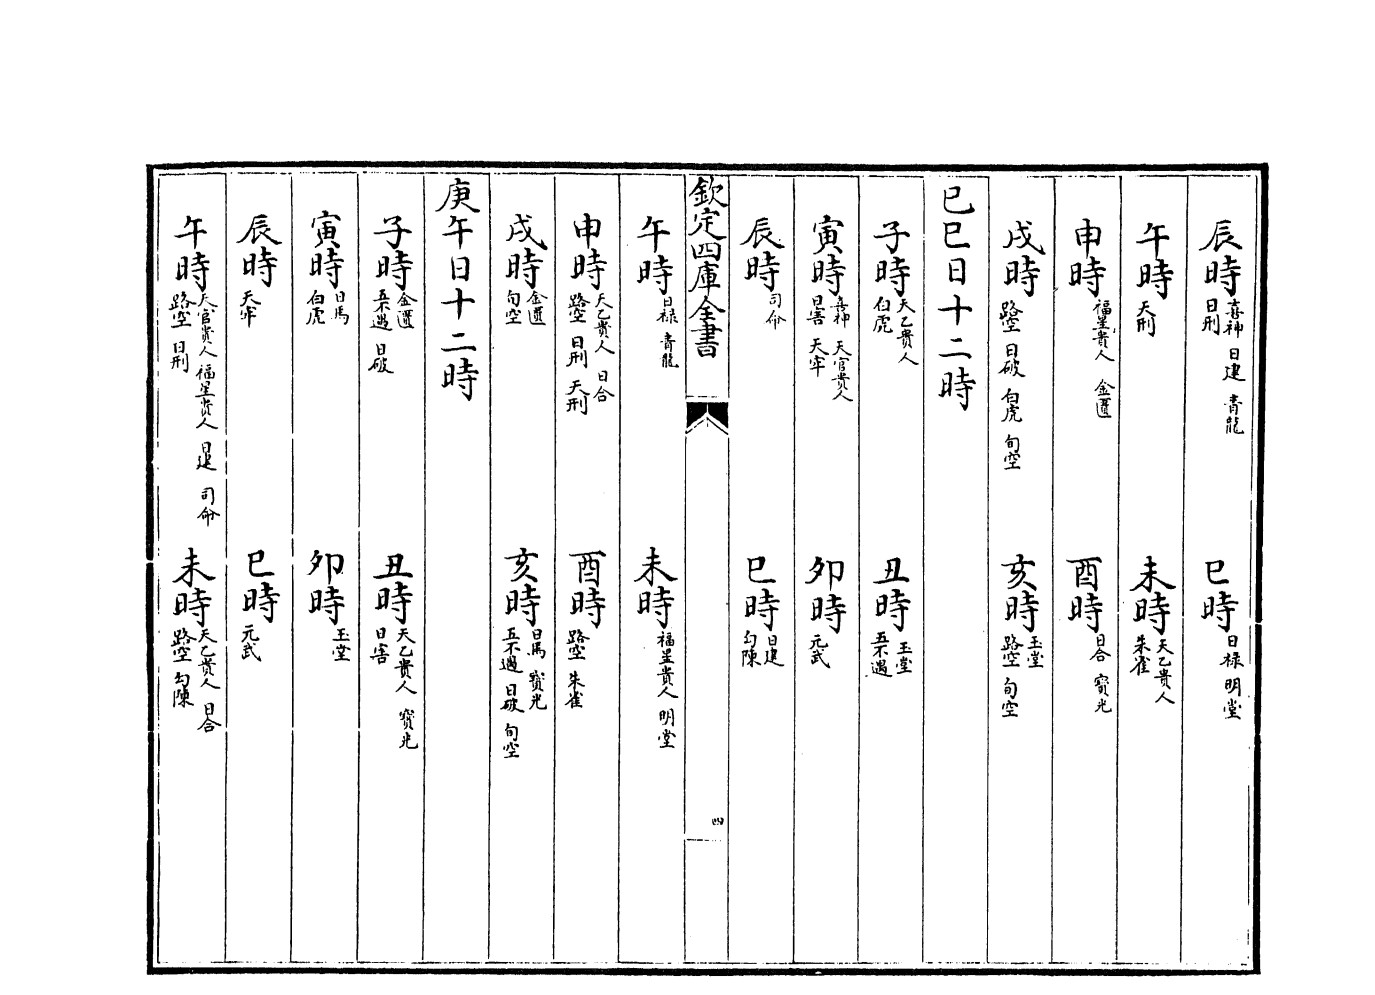 辰時 喜神 日建 青龍 日刑 巳時 日禄 明堂
午時 天刑 未時 天乙貴人 朱雀
申時 福星貴人 金匱 酉時 日合 寳光
戌時 路空 日破 白虎 旬空 亥時 玉堂 路空 旬空
己巳日十二時
子時 天乙貴人 白虎 丑時 玉堂 五不遇
寅時 喜神 天官貴人 日害 天牢 卯時 元武
辰時 司命 巳時 日建 勾陳
欽定四庫全書 四
午時 日禄 青龍 未時 福星貴人 明堂
申時 天乙貴人 日合 路空 日刑 天刑 酉時 路空 朱雀
戌時 金匱 旬空 亥時 日馬 寳光 五不遇 日破 旬空
庚午日十二時
子時 金匱 五不遇 日破 丑時 天乙貴人 寳光 日害
寅時 日馬 白虎 卯時 玉堂
辰時 天牢 巳時 元武
午時 天官貴人 福星貴人 日建 司命 路空 日刑 未時 天乙貴人 日合 路空 勾陳